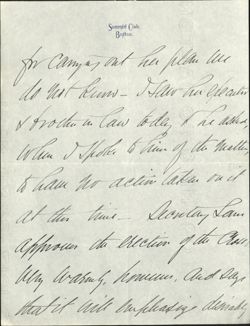 Somerset Club,
Boston.
for carrying out her plan we
do not know — I saw her executor
& brother in law today & he asked
when I spoke to him of the matter
to have no action taken on it
at this time — Secretary Lane
approves the election of the
very warmly, however, and says
that it will emphasize